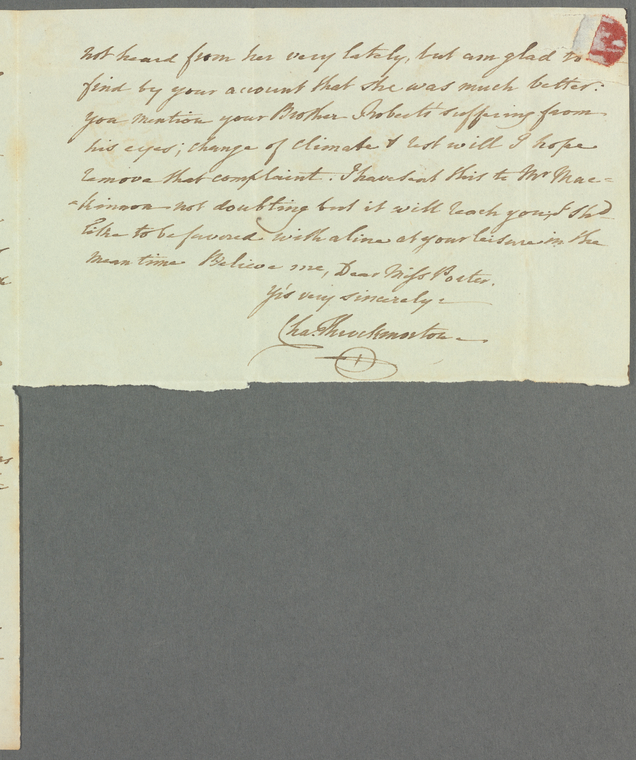 not heard from her very lately, but am glad to
find by your account that she was much better.
You mention your Brother Robert's suffering from
his eyes; change of climate & rest will I hope
remove that complaint. I have sent this to Mr Mac=
=kinnon not doubting but it will reach you, I shd
like to be favored with a line at your leisure in the
mean time Believe me, Dear Miss Porter.
Yrs very sincerely
Chas. Throckmorton